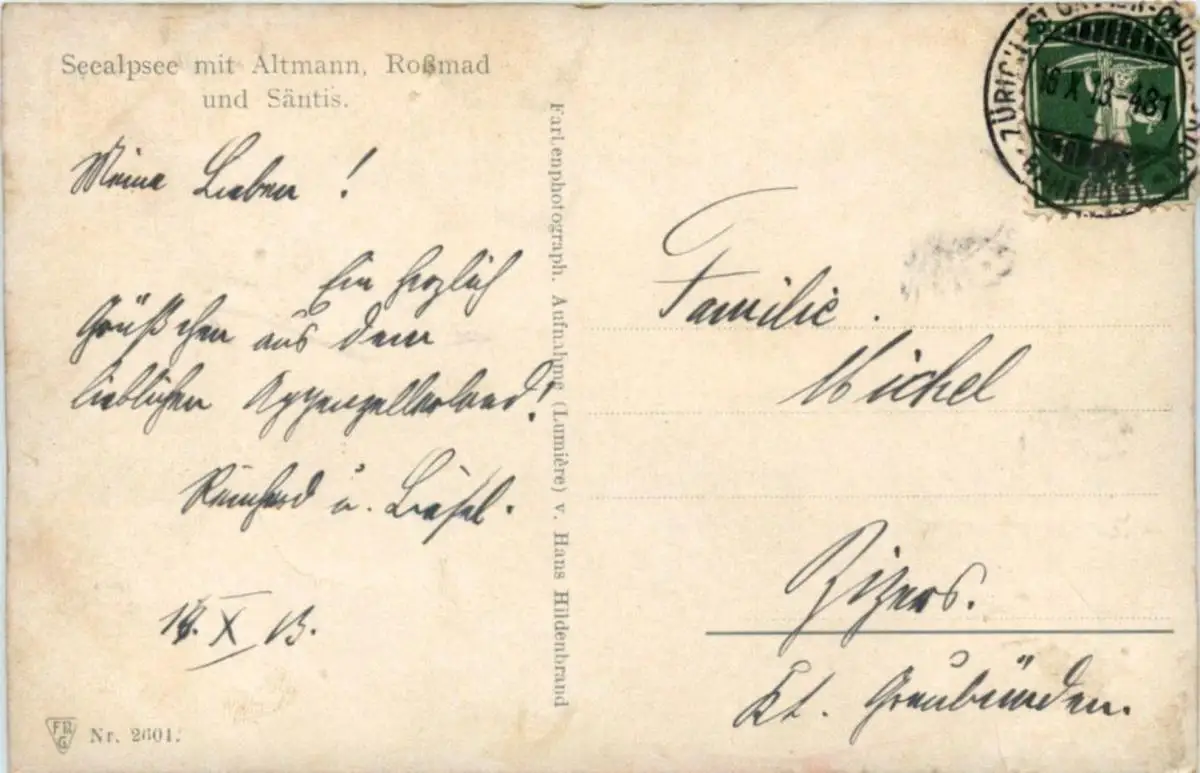 Seealpsee mit Altmann, Roßmad
und Säntis.
Meine Lieben!
Ein herzlich
Grüßchen aus dem
lieblichen Appenzellerland!
Reinhard u. Liesel.
18. X 13.
Nr. 2601.
Farbenphotograph. Aufnahme (Lumière) v. Hans Hildenbrand
ZÜRICH-ST. GALLEN-CHUR
18 X 13-481
BAHNPOST
Familie.
Michel
Zizers.
Kt. Graubünden.